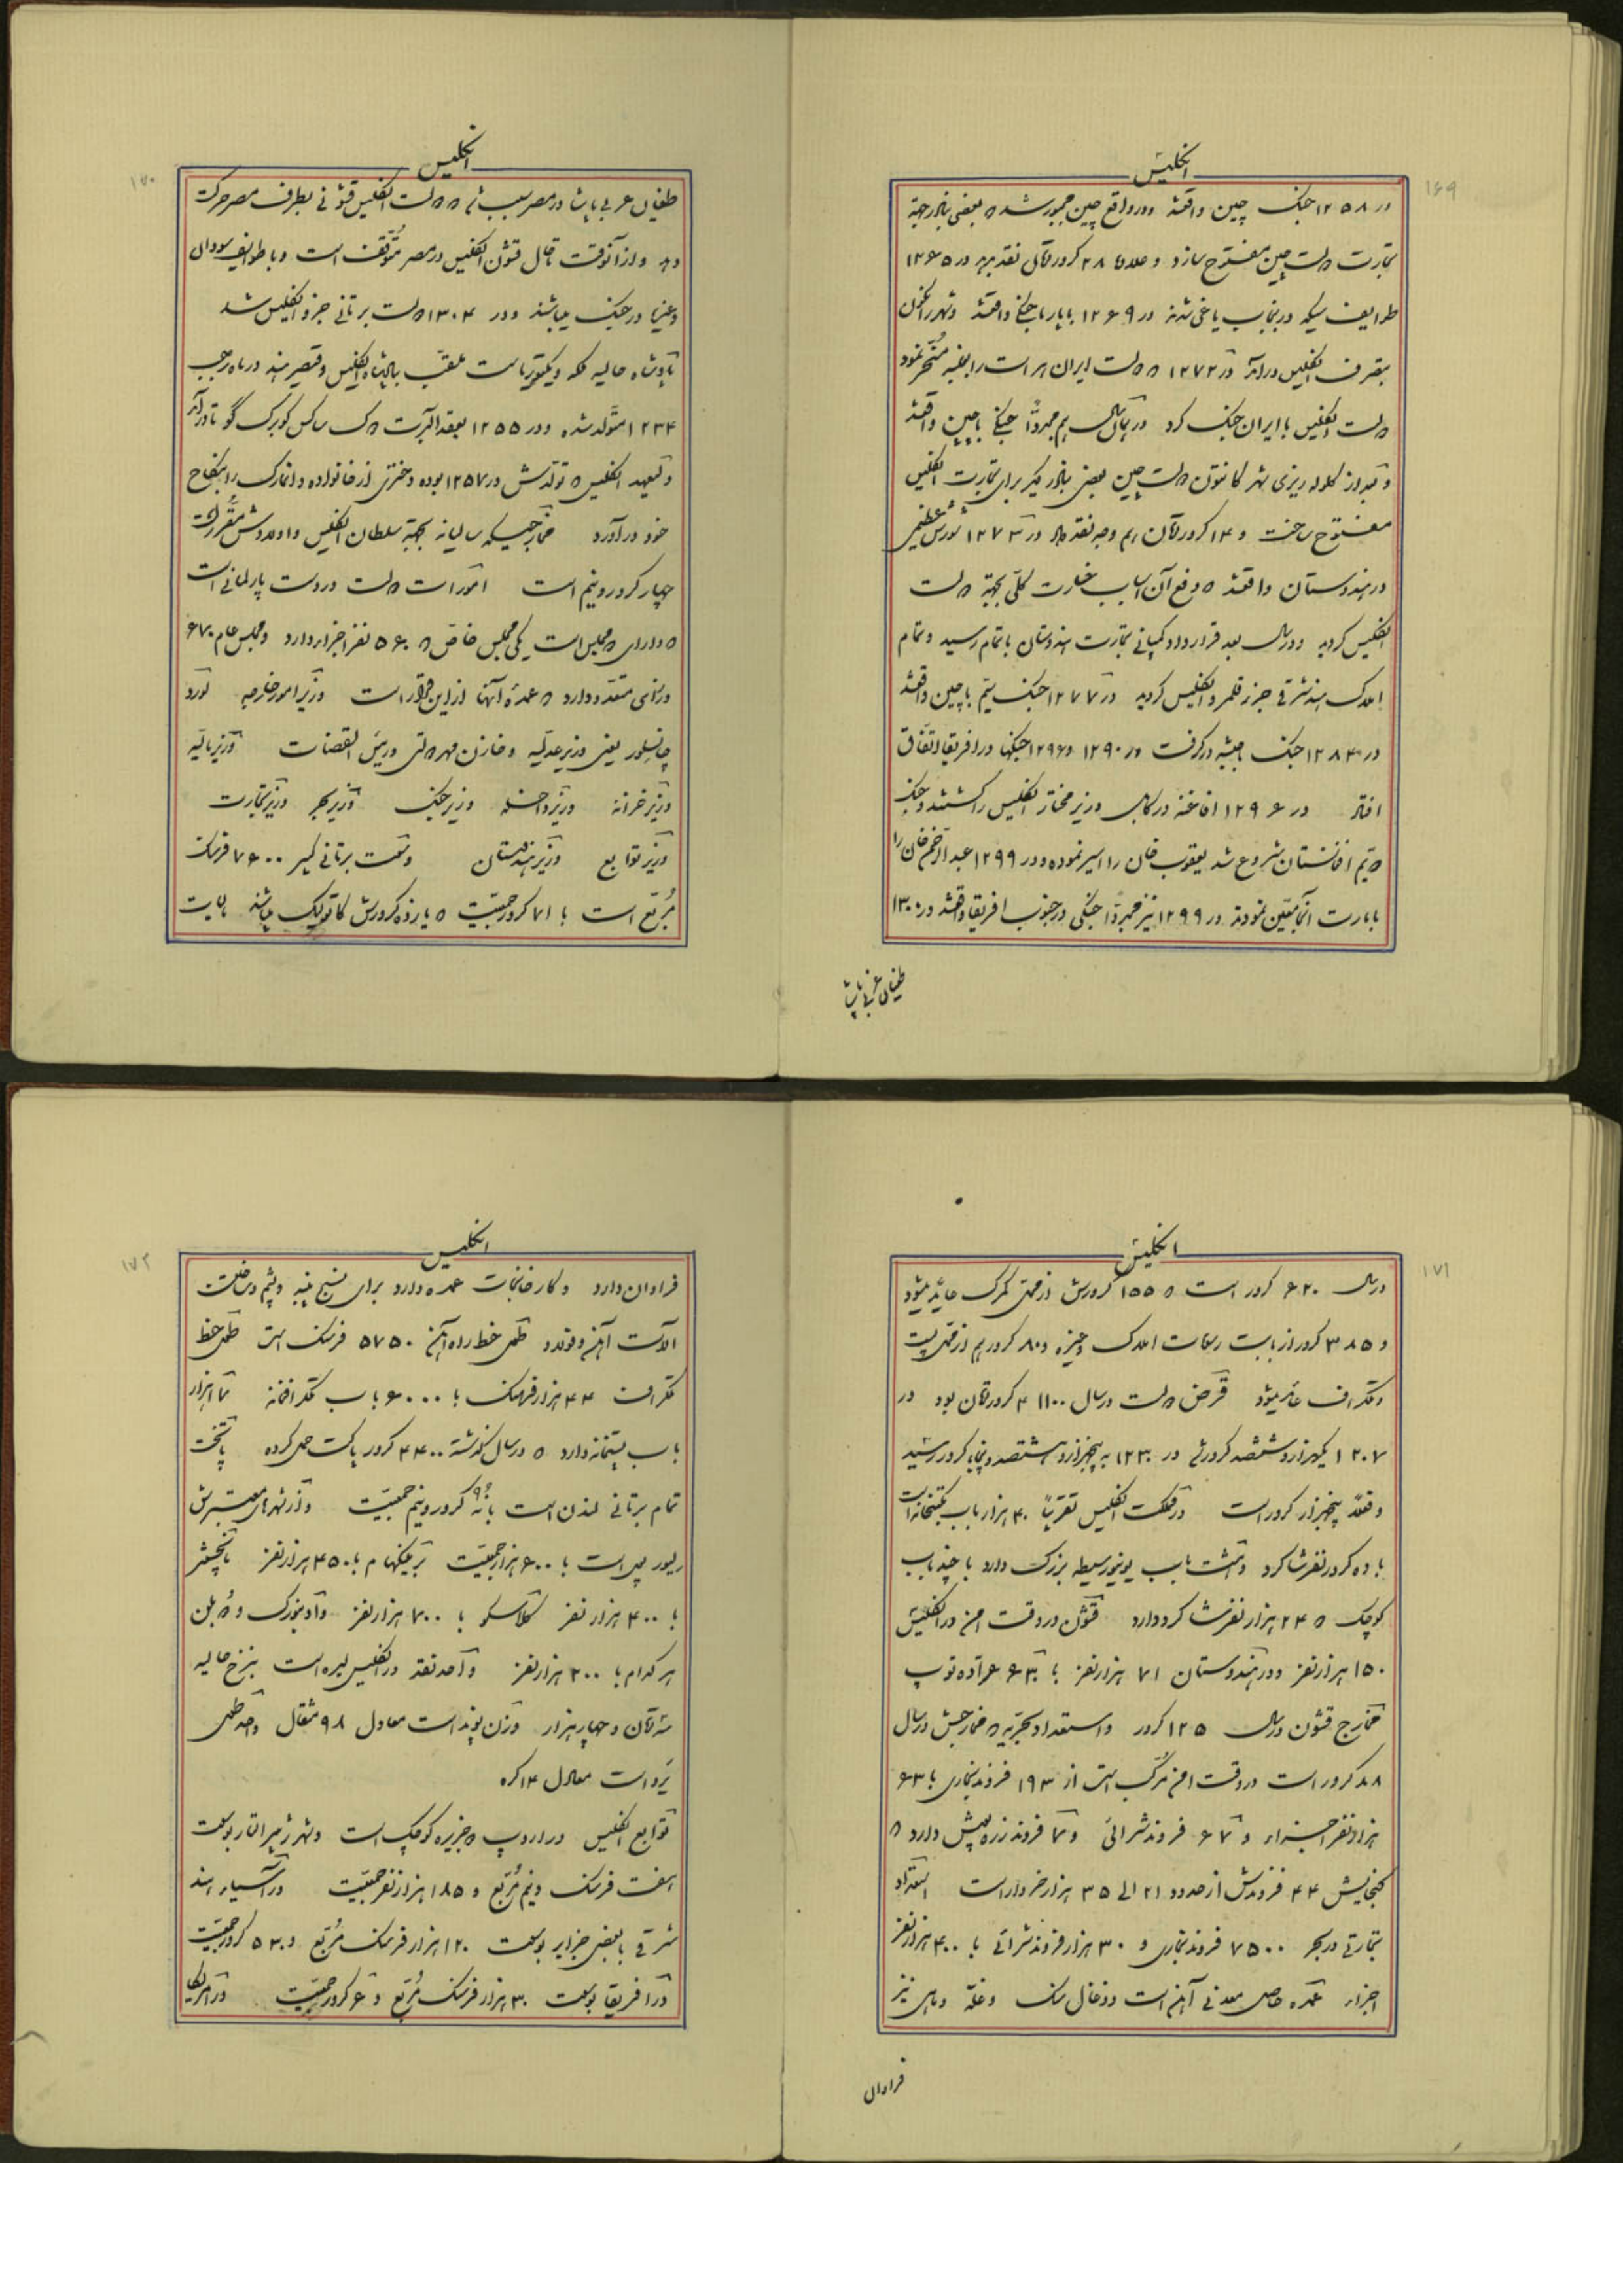 ۱۶۹
انگلیس
در ۱۲۵۸ جنگ چین واقعشد و در واقع چین مجبور شد که بعضی بنادر بجهة
تجارت دولت چین مفتوح سازد و علاوه ۲۸ کرور تومان نقد بدهد در ۱۲۶۵
طوایف سیکه در پنجاب یاغی شدند در ۱۲۶۹ با بارما جنگ واقعشد و شهر رانگون
بتصرف انگلیس درآمد در ۱۲۷۲ که دولت ایران هرات را بغلبه مسخر نمود
دولت انگلیس با ایران جنگ کرد در همان سال هم مجدداً جنگی با چین واقعشد
و بعد از گلوله ریزی بشهر کانتون دولت چین بعضی بنادر دیگر برای تجارت انگلیس
مفتوح ساخت و ۱۴ کرور تومان هم وجه نقد داد در ۱۲۷۳ شورش عظیمی
در هندوستان واقعشد که دفع آن اسباب خسارت کلی بجهة دولت
انگلیس گردید و در سال بعد قرارداد کمپانی تجارت هندوستان باتمام رسید و تمام
املاک هند شرقی جزو قلمرو انگلیس گردید در ۱۲۷۷ جنگ سیم با چین واقعشد
در ۱۲۸۳ جنگ حبشه درگرفت در ۱۲۹۰ و ۱۲۹۶ جنگها در افریقا اتفاق
افتاد در ۱۲۹۶ افاغنه در کابل وزیر مختار انگلیس را کشتند و جنگ
دویم افغانستان شروع شد یعقوب خان را اسیر نموده و در ۱۲۹۹ عبدالرحمن خان را
بامارت آنجا معین نمودند در ۱۲۹۹ نیز مجدداً جنگی در جنوب افریقا واقعشد در ۱۳۰۰
طغیان عربی پاشا
۱۷۰
انگلیس
طغیان عربی پاشا در مصر سبب شد که دولت انگلیس قشونی بطرف مصر حرکت
داد و از آنوقت تا حال قشون انگلیس در مصر متوقف است و با طوایف سودان
و غیرها در جنگ میباشند و در ۱۳۰۴ دولت برتانی جزو انگلیس شد
پادشاه حالیه ملکه ویکتوریا است ملقب بپادشاه انگلیس و قیصر هند در ماه رجب
۱۲۳۴ متولد شده و در ۱۲۵۵ بعقد البرت دوک ساکس کوبورک گوتا درآمد
ولیعهد انگلیس که تولدش در ۱۲۵۷ بوده دختری از خانواده دانمارک را بنکاح
خود درآورد مخارجیکه سالیانه بجهة سلطان انگلیس و اولادش مقرر است
چهار کرور و نیم است امورات دولت در دست پارلمانی است
که دارای دو مجلس است یکی مجلس خاص که ۵۶۰ نفر اجزاء دارد و مجلس عام ۶۷۰
وزرای متعدد دارد که عمده آنها از این قرار است وزیر امور خارجه لورد
چانسلور یعنی وزیر عدلیه و خازن مهر دولتی و رئیس القضات وزیر مالیه
وزیر خزانه وزیر داخله وزیر جنگ وزیر بحر وزیر تجارت
وزیر توابع وزیر هندوستان وسعت برتانی کبیر ۷۶۰۰ فرسنگ
مربع است با ۷۱ کرور جمعیت که یازده کرورش کاتولیک میباشند مالیات
۱۷۱
انگلیس
در سال ۶۲۰ کرور است که ۱۵۵ کرورش از ممر گمرک عاید میشود
و ۳۸۵ کرور از بابت رسومات املاک و غیره و ۸۰ کرور هم از ممر پست
و تلگراف عاید میشود قرض دولت در سال ۱۱۰۰ ۴ کرور تومان بود در
۱۲۰۷ یکهزار و ششصد کرور شد در ۱۲۳۰ به پنجهزار و هشتصد و پنجاه کرور رسید
و فعلاً پنجهزار کرور است در مملکت انگلیس تقریباً ۴۰ هزار باب مکتبخانه است
با ده کرور نفر شاگرد و هشت باب یونیورسیطه بزرگ دارد با چند باب
کوچک که ۲۴ هزار نفر شاگرد دارد قشون در وقت امن در انگلیس
۱۵۰ هزار نفر و در هندوستان ۷۱ هزار نفر با ۶۶۳ عراده توپ
مخارج قشون در سال ۱۲۵ کرور و استعداد بحریه که مخارجش در سال
۸۸ کرور است در وقت امن مرکب است از ۱۹۳ فروند بخاری با ۶۳
هزار نفر اجزاء و ۶۷ فروند شراعی و ۷۴ فروند زره پوش دارد که
گنجایش ۴۴ فروندش از حدود ۲۱ الی ۳۵ هزار خروار است استعداد
تجارتی در بحر ۷۵۰۰ فروند بخاری و ۳۰ هزار فروند شراعی با ۴۰۰ هزار نفر
اجزاء عمده حاصل معدنی آهن است و ذغال سنگ و غله و ماهی نیز
فراوان
۱۷۲
انگلیس
فراوان دارد و کارخانجات عمده دارد برای نسج پنبه و پشم و ساختن
آلات آهن و فولاد طول خط راه آهن ۵۷۵۰ فرسنگ است طول خط
تلگراف ۴۴ هزار فرسنگ با ۶۰۰۰ باب تلگرافخانه ۱۷ هزار
باب پستخانه دارد که در سال گذشته ۴۴۰۰ کرور پاکت حمل کرده پایتخت
تمام برتانی لندن است با نُه ۹ کرور و نیم جمعیت و از شهرهای معتبرش
لیورپول است با ۶۰۰ هزار جمعیت برمینگهام با ۴۵۰ هزار نفر مانچستر
با ۴۰۰ هزار نفر گلاسکو با ۷۰۰ هزار نفر و ادنبورگ و دُبلن
هر کدام با ۳۰۰ هزار نفر واحد نقد در انگلیس لیره است بنرخ حالیه
سه تومان و چهار هزار وزن پوند است معادل ۹۸ مثقال واحد طول
یرد است معادل ۱۴ گره
توابع انگلیس در اروپ دو جزیره کوچک است و شهر جبرالتار بوسعت
هفت فرسنگ و نیم مربع و ۱۸۵ هزار نفر جمعیت در آسیا هند
شرقی با بعضی جزایر بوسعت ۱۲۰ هزار فرسنگ مربع و ۵۳۰ کرور جمعیت
در افریقا بوسعت ۳۰ هزار فرسنگ مربع و ۶ کرور جمعیت در امریکا